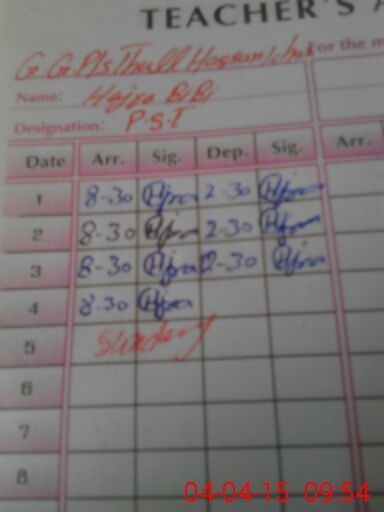 TEACHER'S A
G G P/S Thull Hassan For the m
Name: Hajra BiBi
Designation: P.S.T
Date Arr. Sig. Dep. Sig. Arr.
1 8-30 Hjra 2-30 Hjra
2 8-30 Hjra 2-30 Hjra
3 8-30 Hjra 12-30 Hjra
4 8.30 Hjra
5 Sunday
6
7
8
04-04-15 09:54